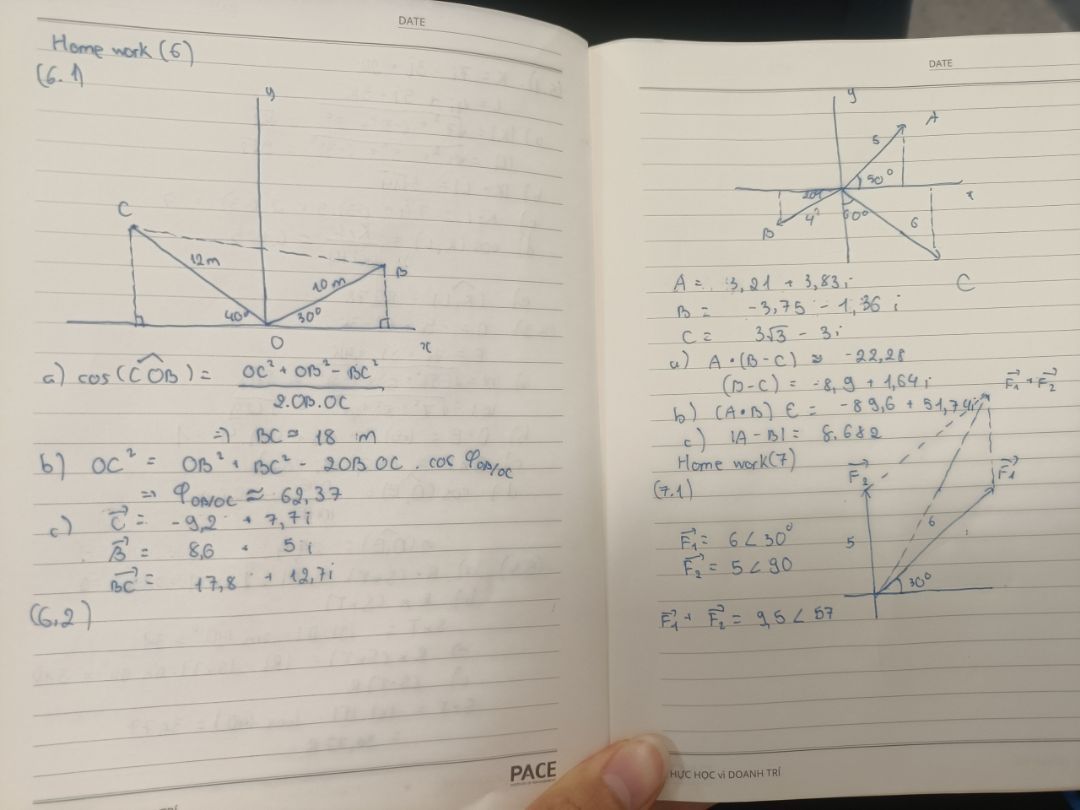 DATE
Home work (6)
(6.1)
y
C
12m
B
10m
40°
30°
O
x
a) cos(COB) = OC² + OB² - BC²
2.OB.OC
=> BC ≈ 18 m
b) OC² = OB² + BC² - 2OB OC . cos φOB/OC
=> φOB/OC ≈ 62,37
c) C = -9,2 + 7,7i
B = 8,6 + 5i
BC = 17,8 + 12,7i
(6,2)
PACE
DATE
y
A
5
50°
20°
x
B
4
60°
6
C
A = 3,21 + 3,83i
B = -3,75 - 1,36 i
C = 3√3 - 3i
a) A•(B-C) ≈ -22,28
(B-C) = -8,9 + 1,64i
b) (A•B) C = -89,6 + 51,74i
c) |A-B| = 8.682
Home work(7)
F1 + F2
F2
F1
(7.1)
5
6
30°
F1 = 6∠30°
F2 = 5∠90
F1 + F2 = 9,5∠57
HỰC HỌC vì DOANH TRÍ